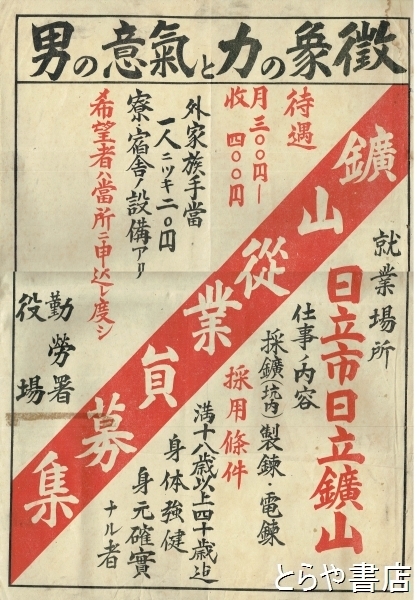 男の意氣と力の象徴
鑛山從業員募集
就業場所
日立市日立鑛山
仕事ノ内容
採鑛(坑内)製錬・電錬
採用條件
満十八歳以上四十歳迠
身体強健
身元確實
ナル者
待遇
月収
三〇〇円―
四〇〇円
外家族手當
一人ニツキ二〇円
寮・宿舎ノ設備アリ
希望者ハ當所ニ申込レ度シ
勤勞署
役場
とらや書店